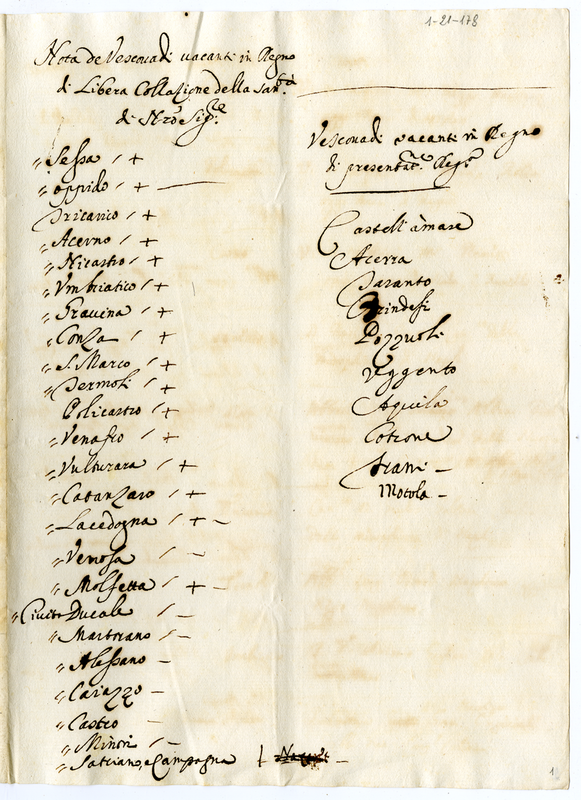 1-21-178
Nota de Vescouadi uacanti in Regno
di Libera Collazione della San.tà
di Nro Sig.re
" Sessa / +
" oppido / + —
Tricarico / +
" Acerno / +
" Nicastro / +
" Vmbriatico / +
" Grauina / +
" Conza / +
" S. Marco / +
" Termoli / +
Policastro / +
" Venafro / +
" Vulturara / +
" Catanzaro / +
" Lacedogna / + –
" Venosa / –
" Molfetta / + –
" Ciuita Ducale / –
" Martorano / –
" Alessano –
" Caiazzo –
" Castro –
" Minori / –
" Satriano, e Campagna
Vescouadi vacanti in Regno
di presentat.ne Reg.a
Castell'àmare
Acerra
Taranto
Brindesi
Pozzuoli
Vggento
Aquila
Cotrone
Trani –
Motola –
1